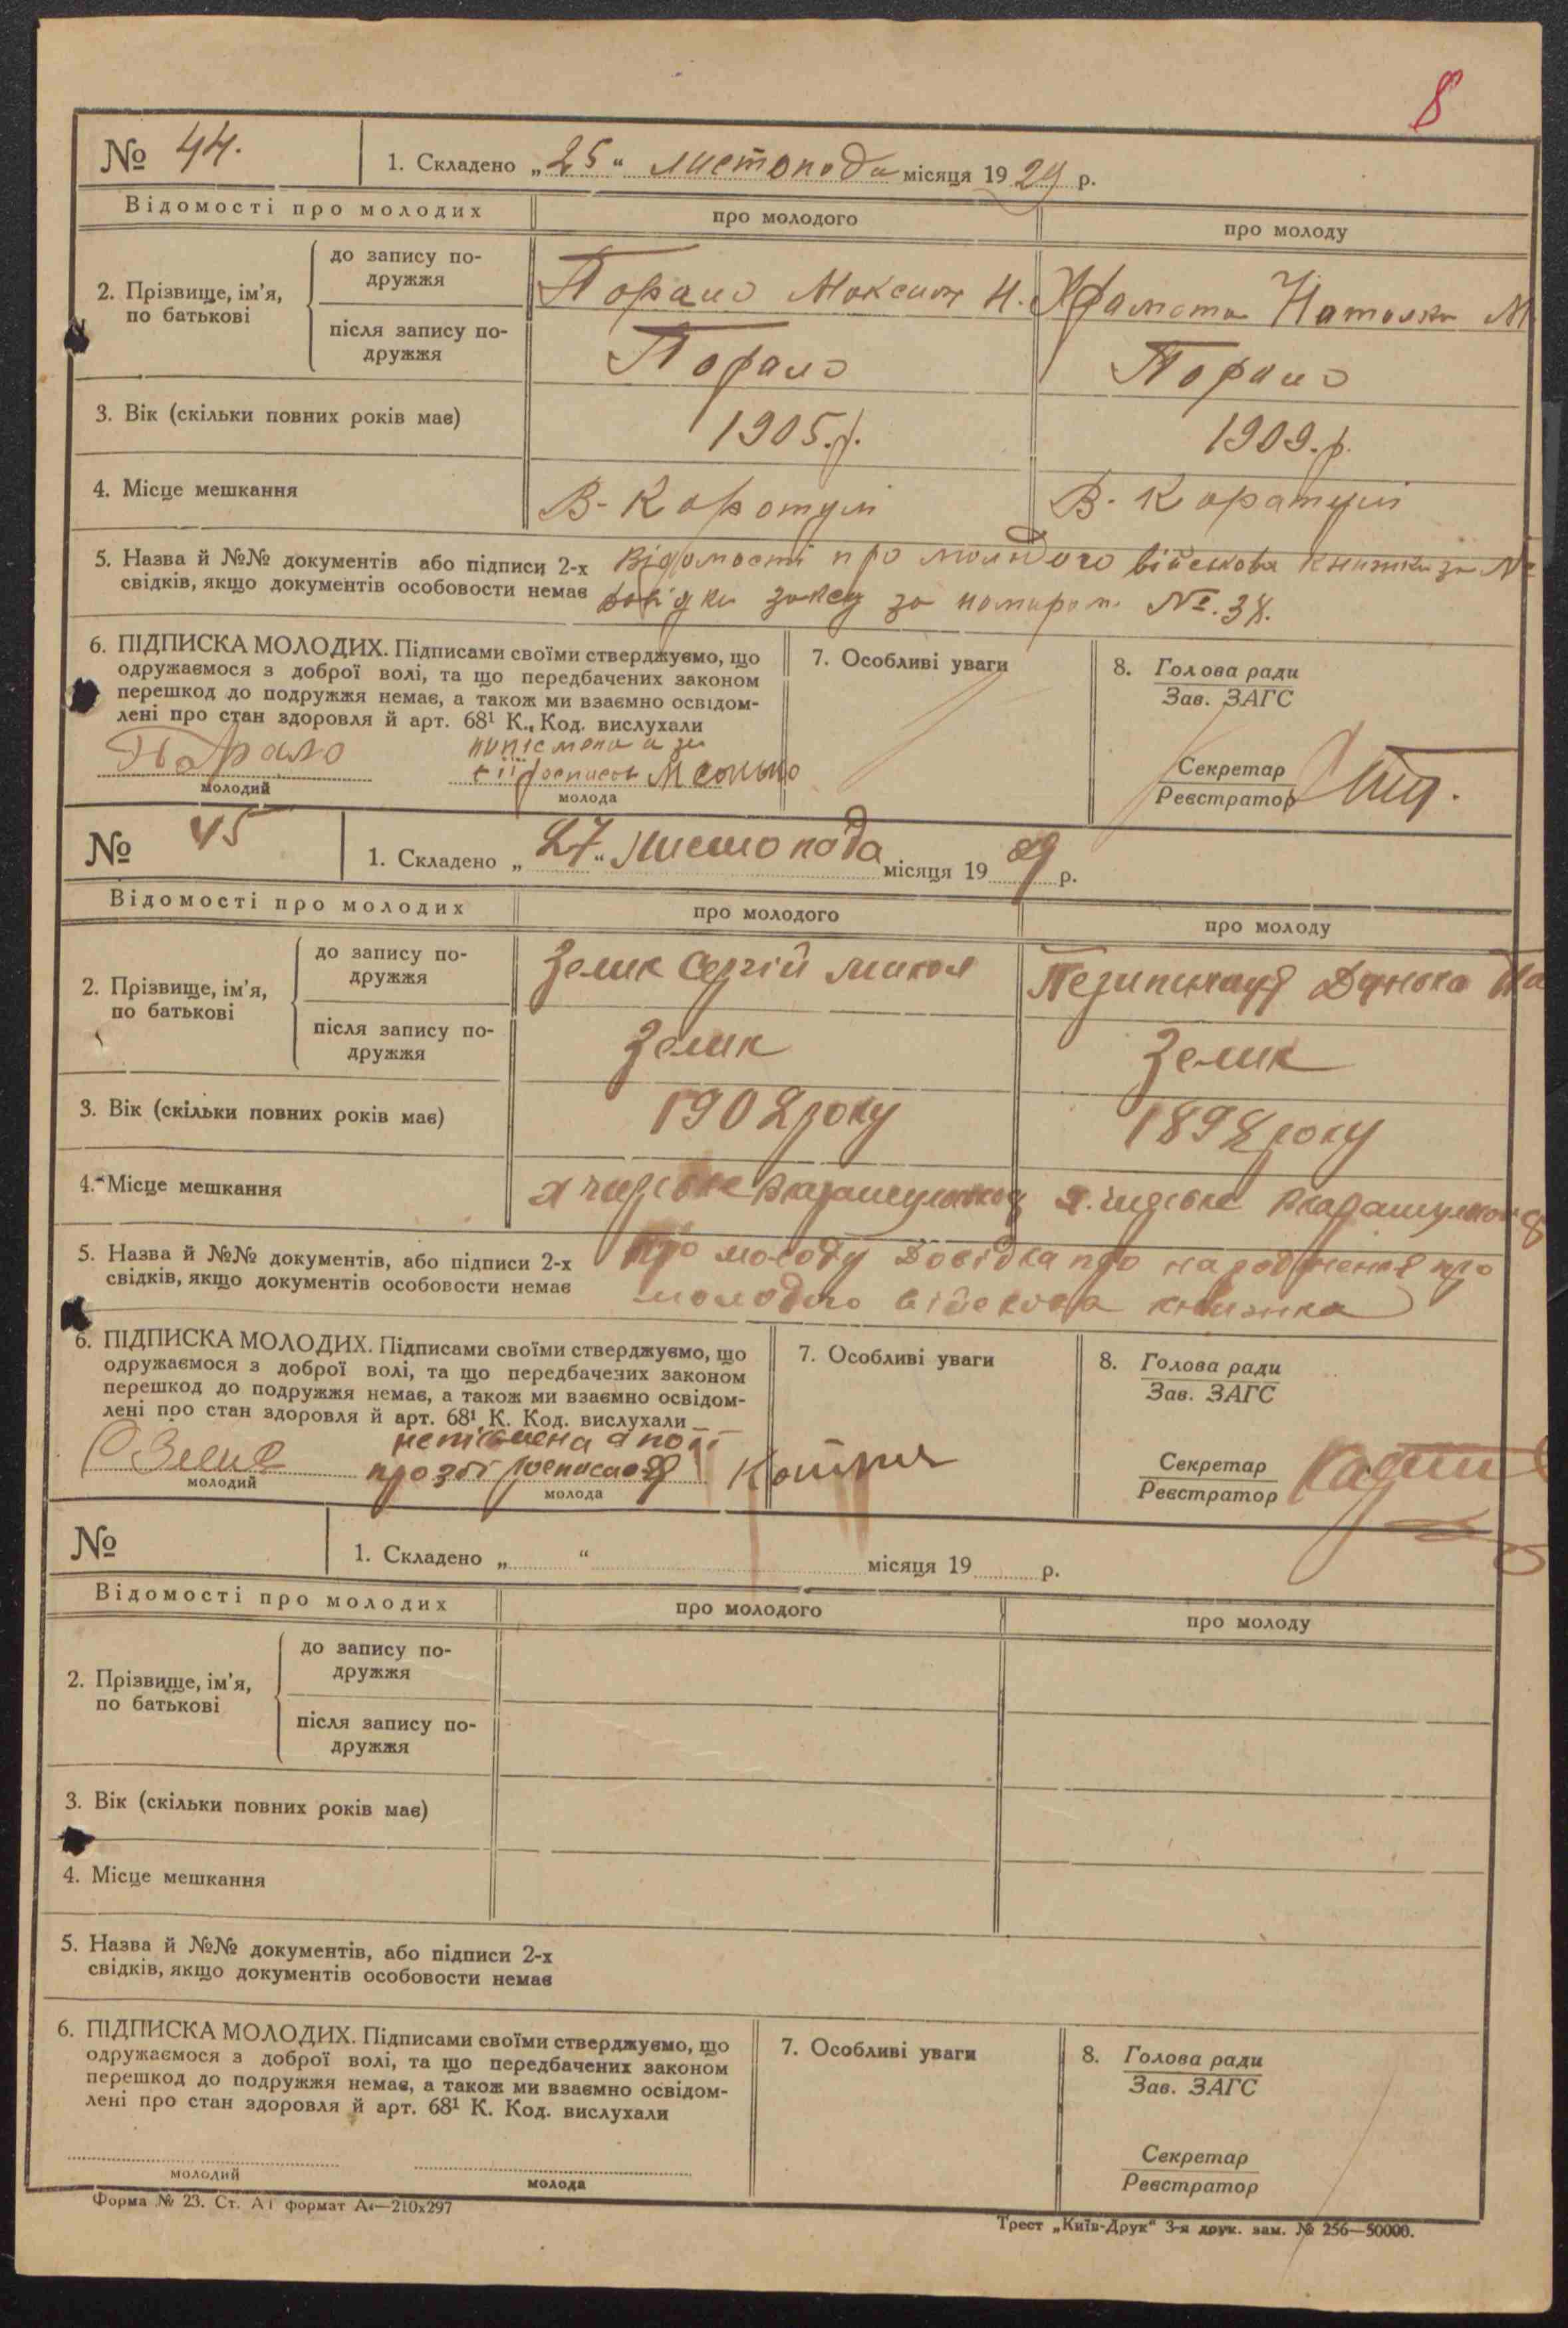 8
№ 44. 1. Складено „25“ листопада місяця 1929 р.
Відомості про молодих про молодого про молоду
2. Прізвище, ім’я, по батькові
до запису по-дружжя Порало Максим Н. Натолка М
після запису по-дружжя Порало Порало
3. Вік (скільки повних років має) 1905.р. 1909.р.
4. Місце мешкання В-Коротулі В-Каратулі
5. Назва й №№ документів або підписи 2-х Відомости про молодого військова книжка за №
свідків, якщо документів особовости немає за №.38.
6. ПІДПИСКА МОЛОДИХ. Підписами своїми стверджуємо, що
одружаємося з доброї волі, та що передбачених законом
перешкод до подружжя немає, а також ми взаємно освідом-
лені про стан здоровля й арт. 68¹ К. Код. вислухали
Порало
молодий молода
7. Особливі уваги
8. Голова ради
Зав. ЗАГС
Секретар
Реєстратор
№ 45 1. Складено „27“ Листопада місяця 1929 р.
Відомості про молодих про молодого про молоду
2. Прізвище, ім’я, по батькові
до запису по-дружжя Зелик Сергій Микол
після запису по-дружжя Зелик Зелик
3. Вік (скільки повних років має) 1902 року 1898 року
4. Місце мешкання
5. Назва й №№ документів, або підписи 2-х Про молоду Довідка про народження про
свідків, якщо документів особовости немає молодого військова книжка
6. ПІДПИСКА МОЛОДИХ. Підписами своїми стверджуємо, що
одружаємося з доброї волі, та що передбачених законом
перешкод до подружжя немає, а також ми взаємно освідом-
лені про стан здоровля й арт. 68¹ К. Код. вислухали
неписьмена а по її
прозбі росписався
молодий молода
7. Особливі уваги
8. Голова ради
Зав. ЗАГС
Секретар
Реєстратор
№ 1. Складено „ “ місяця 19 р.
Відомості про молодих про молодого про молоду
2. Прізвище, ім’я, по батькові
до запису по-дружжя
після запису по-дружжя
3. Вік (скільки повних років має)
4. Місце мешкання
5. Назва й №№ документів, або підписи 2-х
свідків, якщо документів особовости немає
6. ПІДПИСКА МОЛОДИХ. Підписами своїми стверджуємо, що
одружаємося з доброї волі, та що передбачених законом
перешкод до подружжя немає, а також ми взаємно освідом-
лені про стан здоровля й арт. 68¹ К. Код. вислухали
молодий молода
7. Особливі уваги
8. Голова ради
Зав. ЗАГС
Секретар
Реєстратор
Форма № 23. Ст. А1 формат А4—210х297
Трест „Київ-Друк“ 3-я друк. зам. № 256—50000.